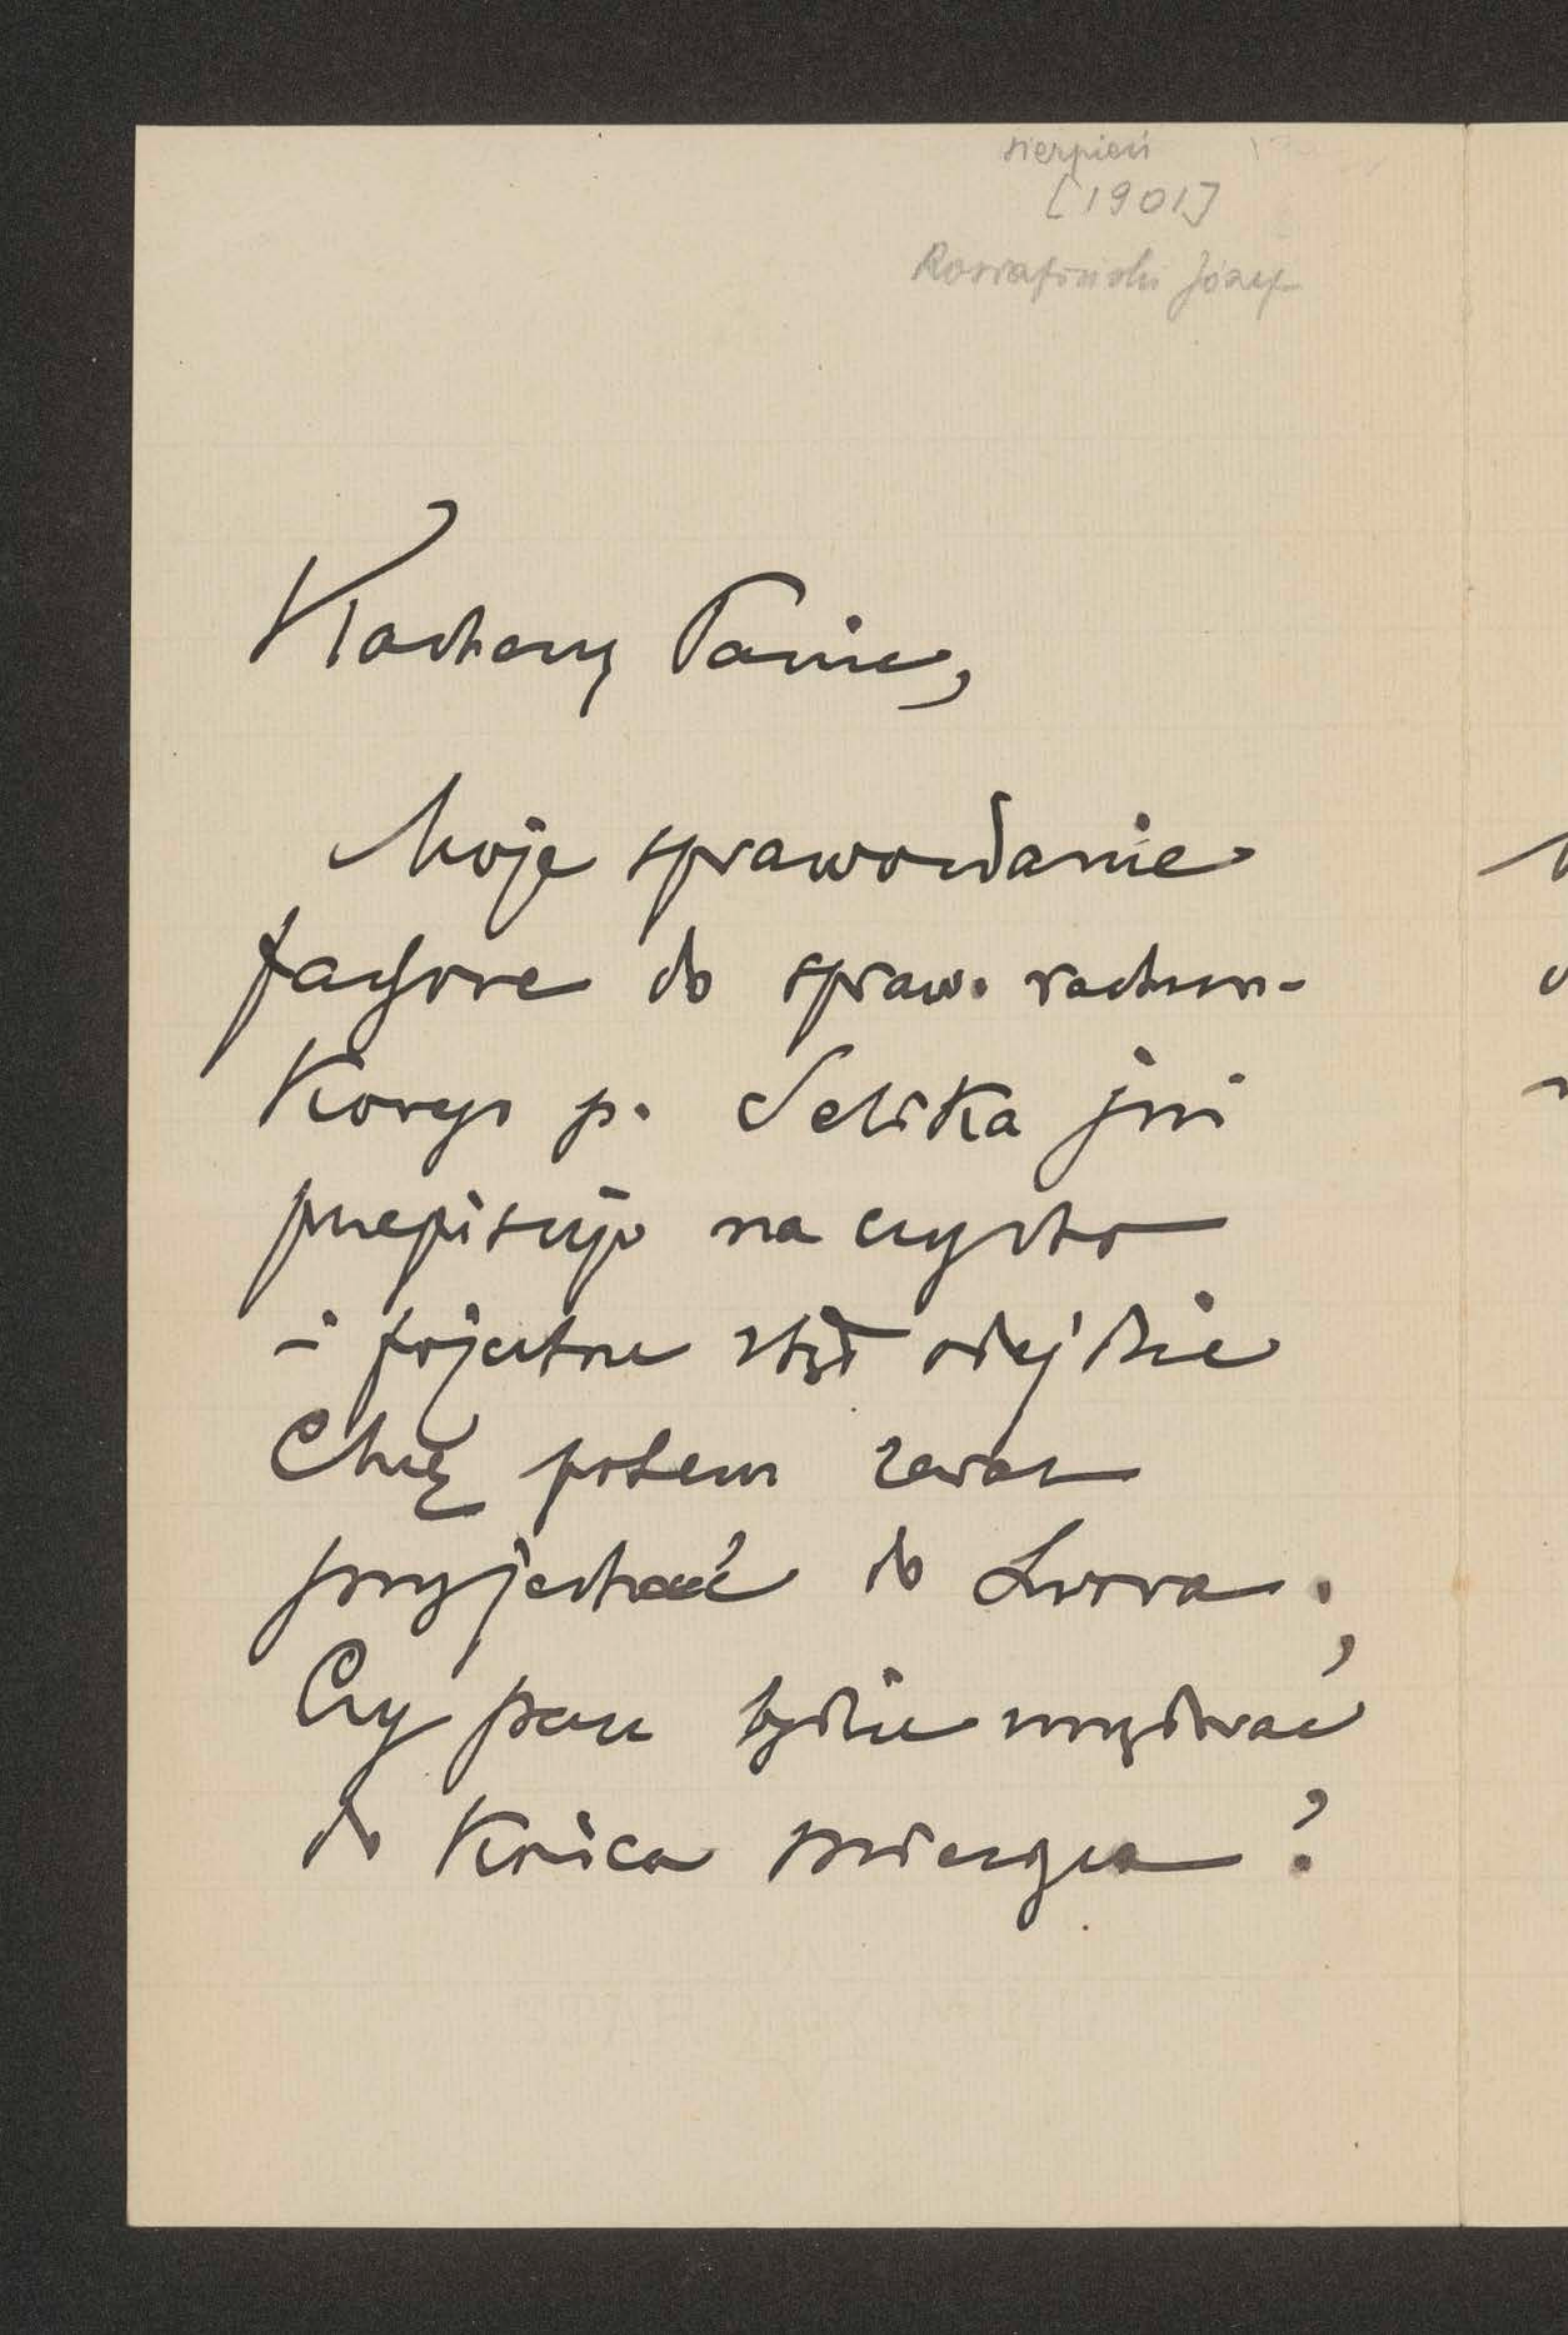 sierpień
[1901]
Rostafiński Józef
Kochany Panie,
Moje sprawozdanie
fachowe do spraw. rachun-
kowego p. Selika już
przepisuję na czysto
i pojutrze stąd odejdzie
Chcę potem zaraz
przyjechać do Lwowa.
Czy pan będzie urzędować
do końca miesiąca?